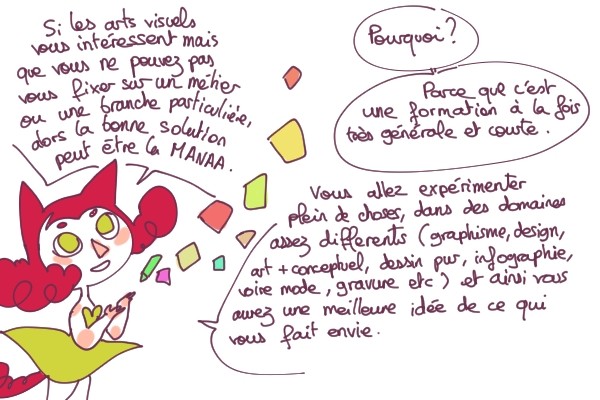 Si les arts visuels
vous intéressent mais
que vous ne pouvez pas
vous fixer sur un métier
ou une branche particulière,
alors la bonne solution
peut être la MANAA.
Pourquoi?
Parce que c'est
une formation à la fois
très générale et courte.
Vous allez expérimenter
plein de choses, dans des domaines
assez différents (graphisme, design,
art + conceptuel, dessin pur, infographie,
voire mode, gravure etc) et ainsi vous
aurez une meilleure idée de ce qui
vous fait envie.